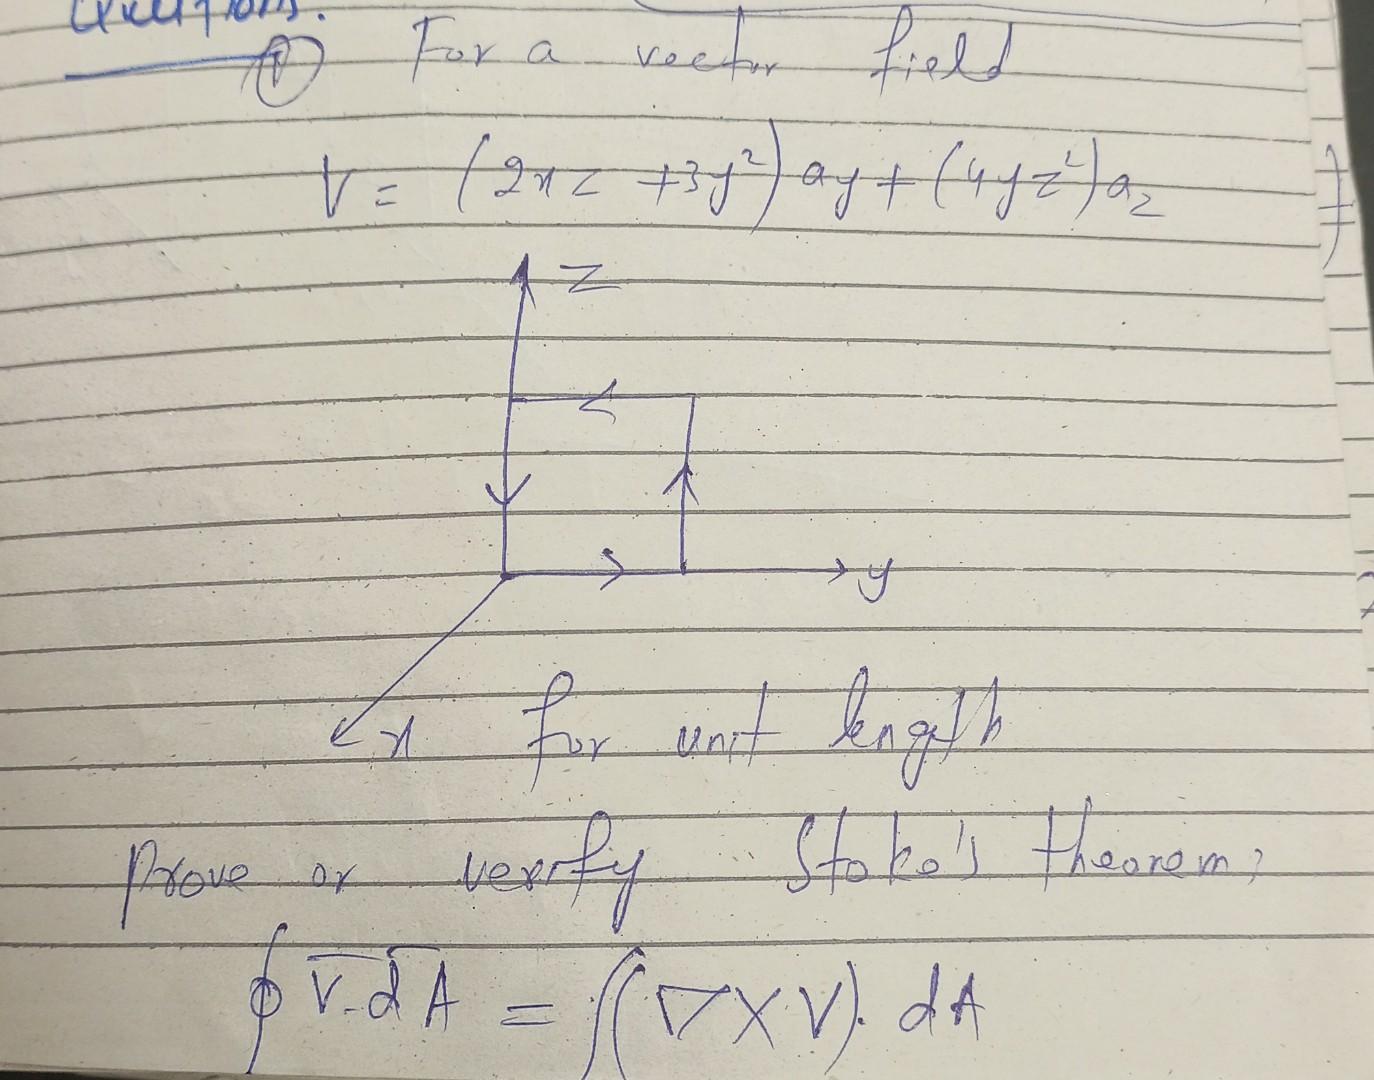 Questions.
① For a vector field
V = (2xz + 3y²) ay + (4yz²) az
z
y
x for unit length
Prove or verify Stoke's theorem;
∮ V̅.d̅A̅ = ∬(∇×V). dA